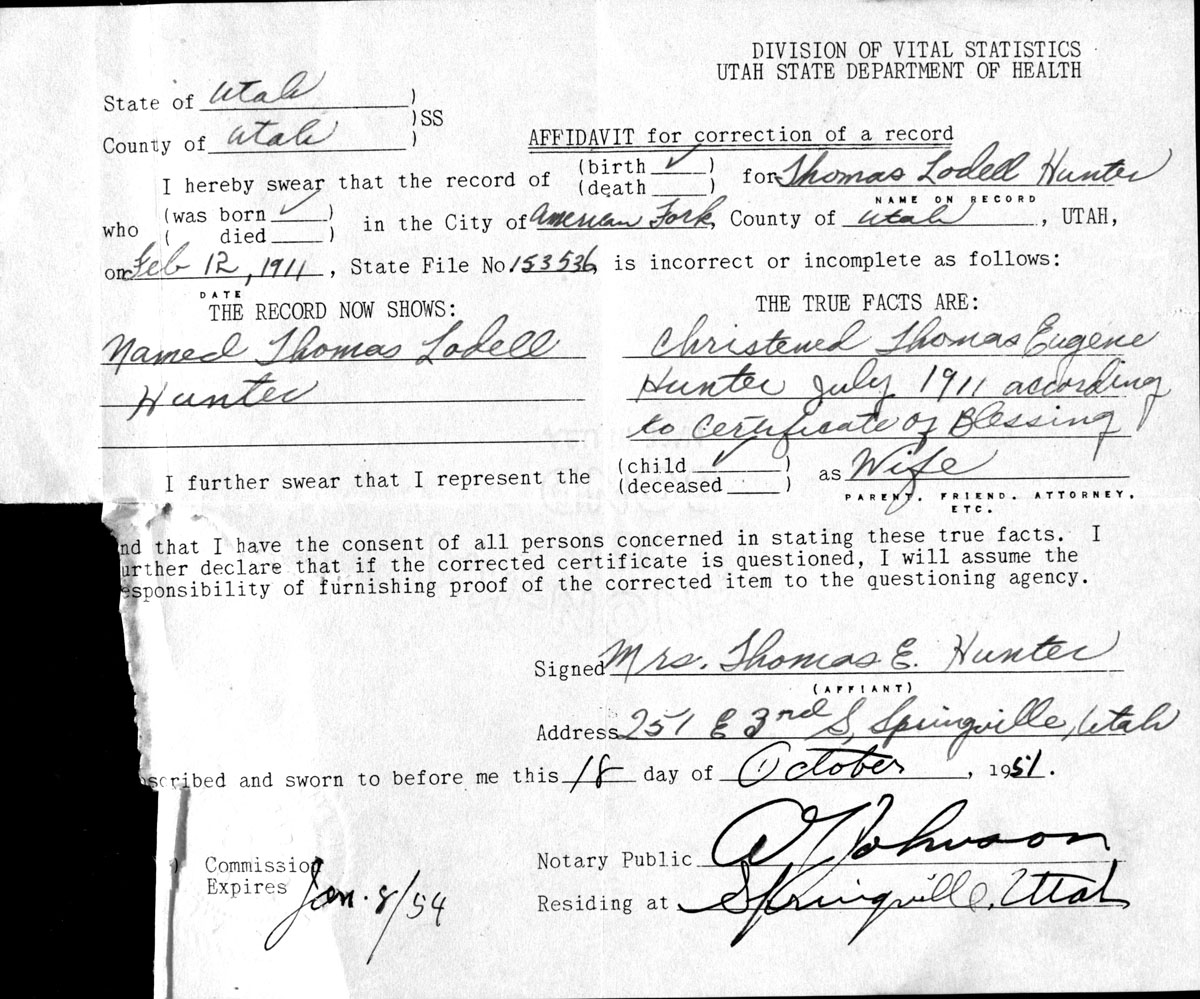 DIVISION OF VITAL STATISTICS
UTAH STATE DEPARTMENT OF HEALTH
State of Utah )
)SS
County of Utah )
AFFIDAVIT for correction of a record
I hereby swear that the record of (birth ✓ ) for Thomas Lodell Hunter
(death ____)
NAME ON RECORD
who (was born ✓ ) in the City of American Fork, County of Utah, UTAH,
( died ____)
on Feb 12, 1911, State File No. 153536, is incorrect or incomplete as follows:
DATE
THE RECORD NOW SHOWS: THE TRUE FACTS ARE:
Named Thomas Lodell Christened Thomas Eugene
Hunter Hunter July 1911 according
to Certificate of Blessing
I further swear that I represent the (child ✓ ) as Wife
(deceased ____)
PARENT, FRIEND, ATTORNEY,
ETC.
nd that I have the consent of all persons concerned in stating these true facts. I
urther declare that if the corrected certificate is questioned, I will assume the
esponsibility of furnishing proof of the corrected item to the questioning agency.
Signed Mrs. Thomas E. Hunter
(AFFIANT)
Address 251 E 3rd S, Springville, Utah
scribed and sworn to before me this 18 day of October, 1951.
Notary Public Johnson
Commission
Expires Jan. 8/54
Residing at Springville, Utah